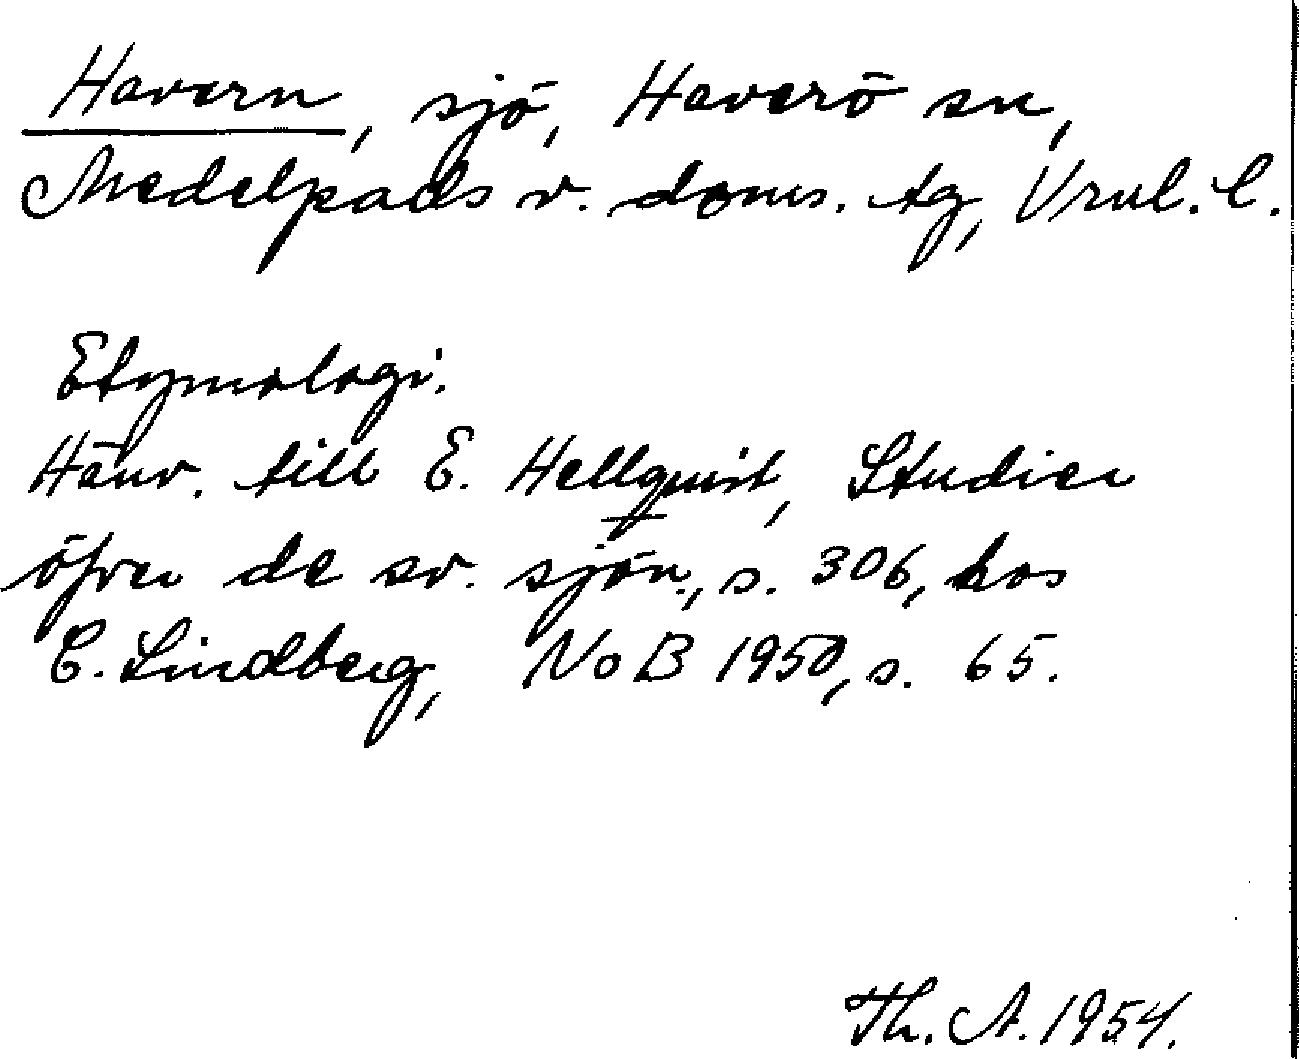 Havern, sjö, Haverö sn,
Medelpads v. doms. tg, Vrnl. l.
Etymologi.
Hänv. till E. Hellquist, Studier
öfver de sv. sjön., s. 306, hos
C. Lindberg, NoB 1950, s. 65.
Th. A. 1954.